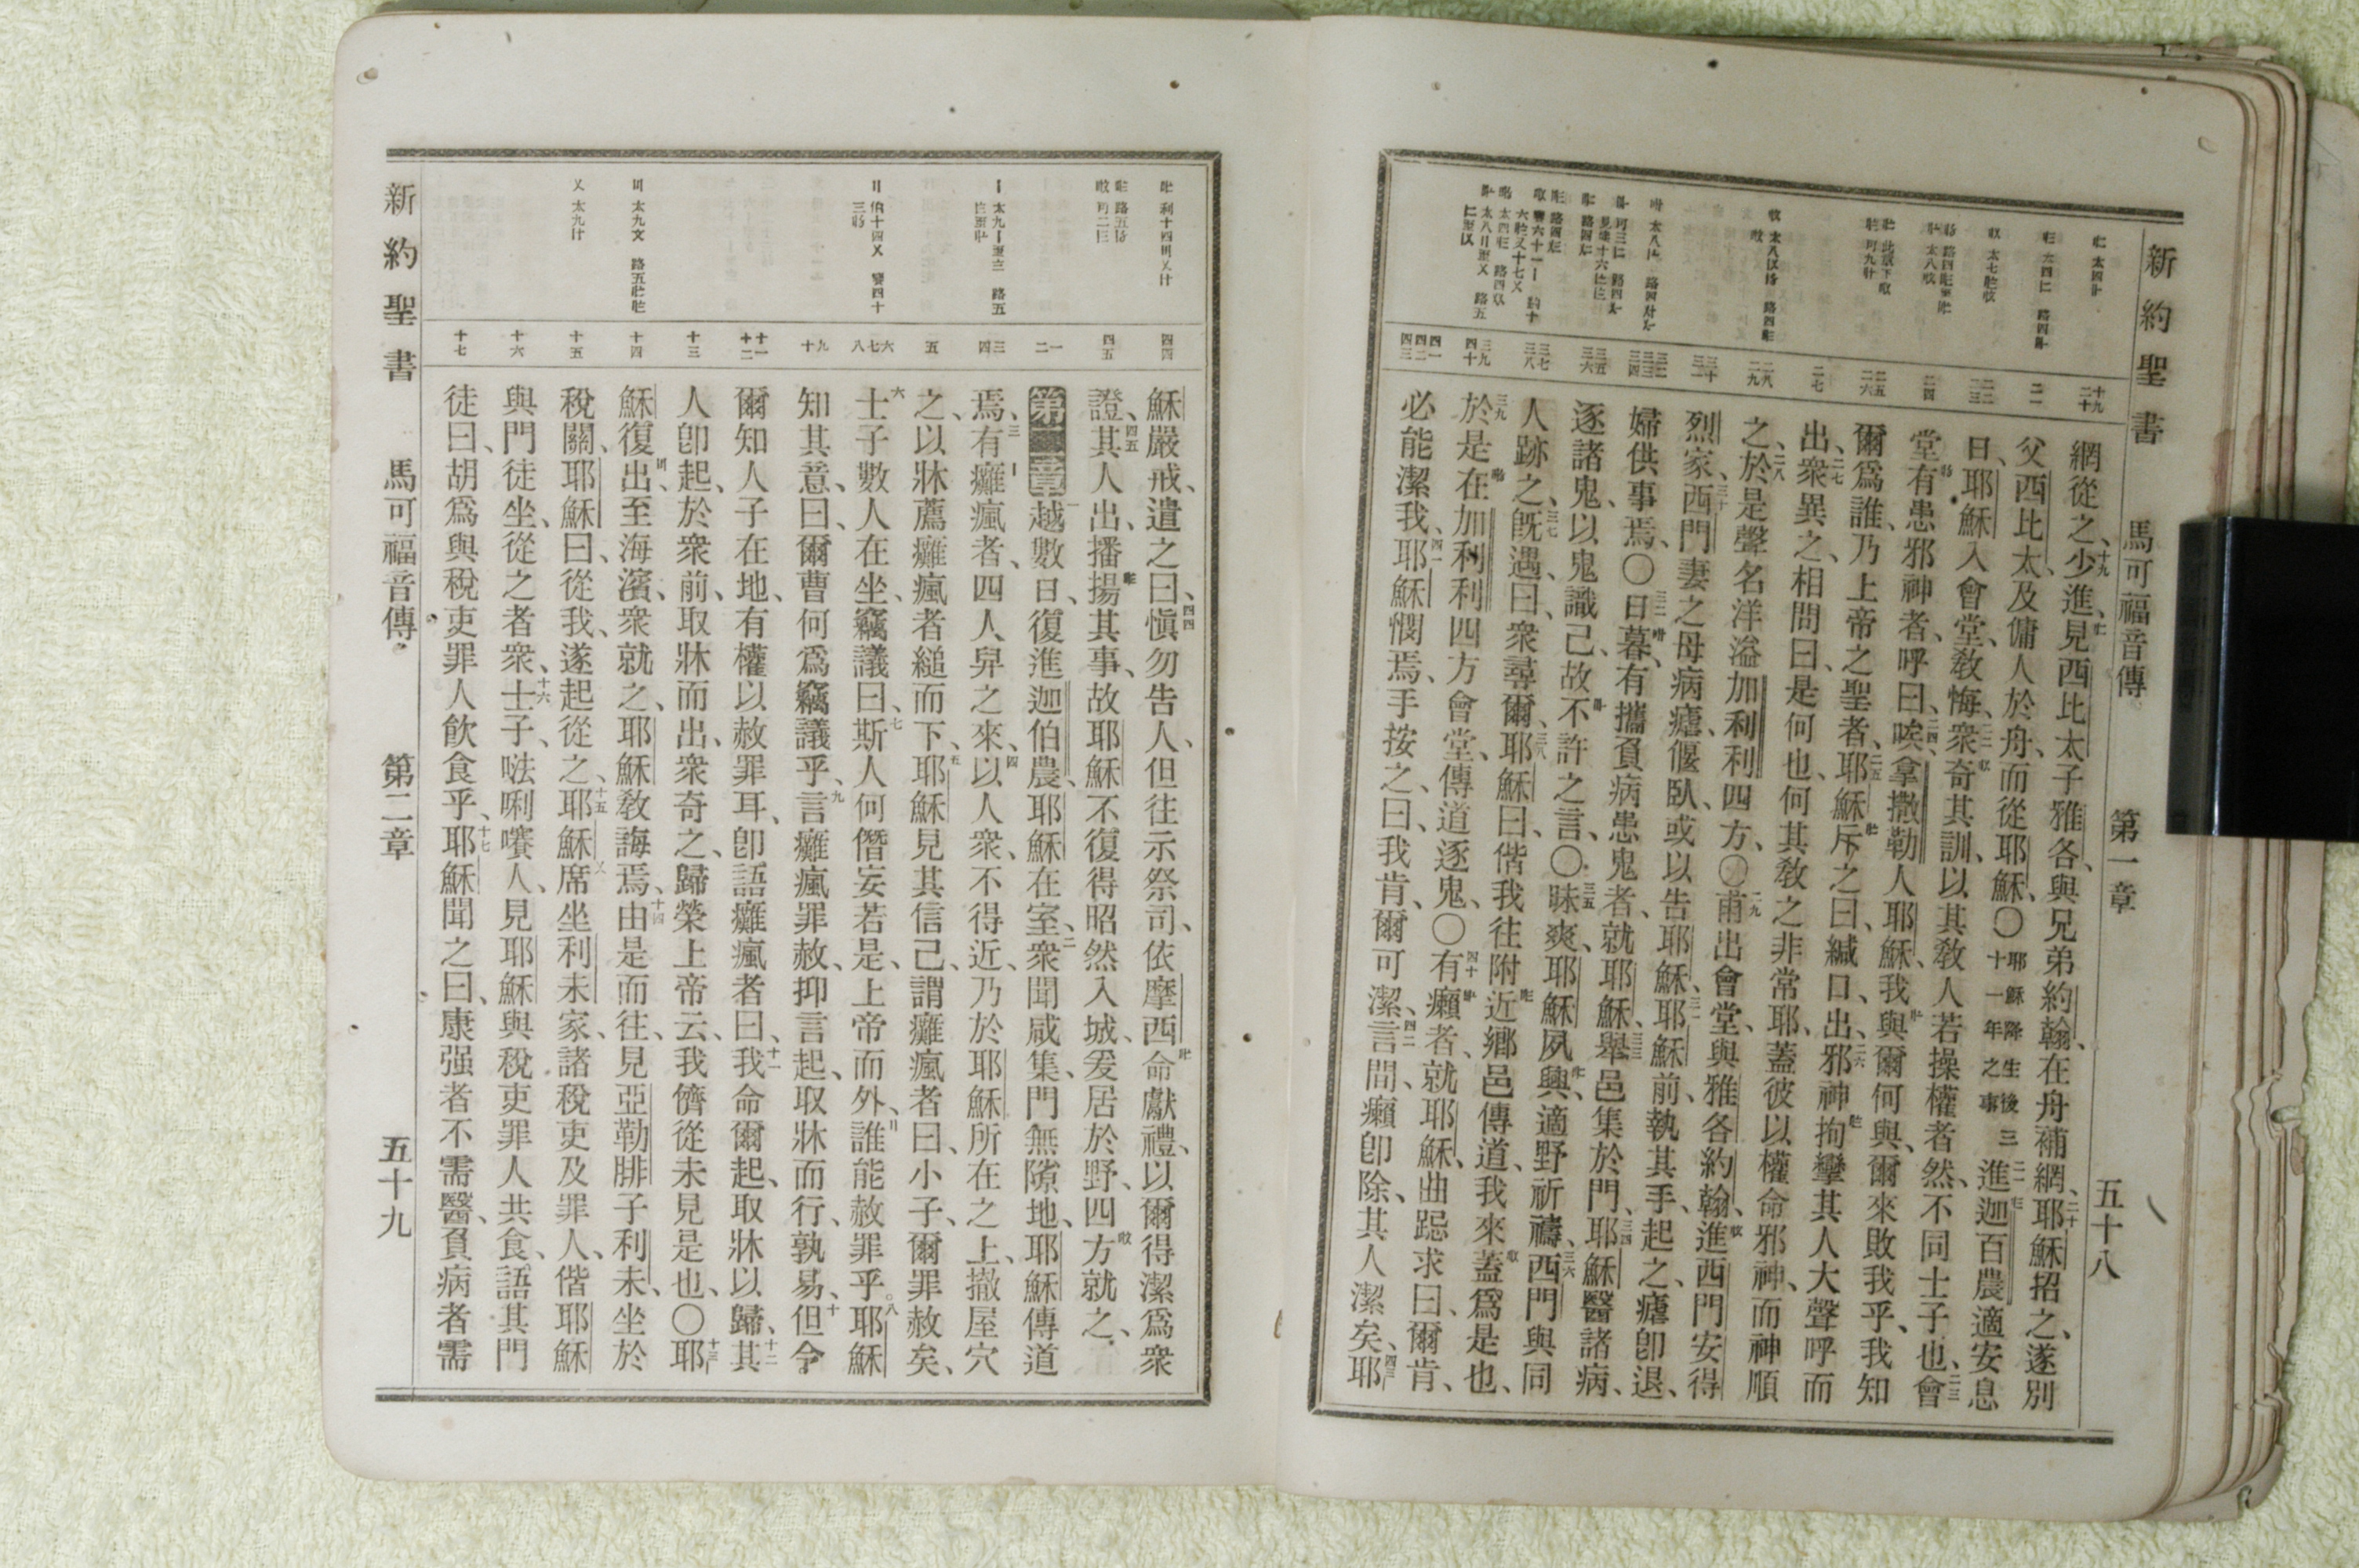 新約聖書 馬可福音傳 第一章 五十八
網從之、十九少進、見西比太子雅各、與兄弟約翰、在舟補網、二十耶穌招之、遂別
父西比太、及傭人於舟、而從耶穌、〇耶穌降生後三十一年之事二一進迦百農、適安息
日、耶穌入會堂、敎悔、二二衆奇其訓、以其敎人若操權者然、不同士子也、二三會
堂有患邪神者、呼曰、二四唉、拿撒勒人耶穌、我與爾何與、爾來敗我乎、我知
爾爲誰、乃上帝之聖者、二五耶穌斥之曰、緘口、出、二六邪神拘攣其人大聲呼而
出、二七衆異之、相問曰、是何也、何其敎之非常耶、蓋彼以權命邪神、而神順
之、二八於是聲名洋溢加利利四方、〇二九甫出會堂、與雅各約翰、進西門安得
烈家、三十西門妻之母病瘧偃臥、或以告耶穌、三一耶穌前、執其手、起之、瘧卽退、
婦供事焉、〇三二日暮、有攜負病患鬼者、就耶穌、三三舉邑集於門、三四耶穌醫諸病、
逐諸鬼、以鬼識己、故不許之言、〇三五昧爽、耶穌夙興、適野祈禱、三六西門與同
人跡之、三七旣遇、曰、衆尋爾、三八耶穌曰、偕我往附近鄉邑傳道、我來蓋爲是也、
三九於是在加利利四方會堂、傳道逐鬼、〇四十有癩者、就耶穌、曲跽求曰、爾肯、
必能潔我、四一耶穌憫焉、手按之、曰、我肯、爾可潔、四二言間、癩卽除、其人潔矣、四三耶
穌嚴戒、遣之曰、四四愼勿告人、但往示祭司、依摩西命獻禮、以爾得潔爲衆
證、四五其人出、播揚其事、故耶穌不復得昭然入城、爰居於野、四方就之、
第二章一越數日、復進迦伯農、耶穌在室、二衆聞咸集、門無隙地、耶穌傳道
焉、三有癱瘋者、四人舁之來、四以人衆、不得近、乃於耶穌所在之上、撤屋穴
之、以牀薦癱瘋者縋而下、五耶穌見其信己、謂癱瘋者曰、小子、爾罪赦矣、
六士子數人在坐、竊議曰、七斯人何僭妄若是、上帝而外、誰能赦罪乎。八耶穌
知其意、曰、爾曹何爲竊議乎、九言癱瘋罪赦、抑言起、取牀而行、孰易、十但令
爾知人子在地、有權以赦罪耳、卽語癱瘋者曰、十一我命爾起、取牀以歸、十二其
人卽起、於衆前、取牀而出、衆奇之、歸榮上帝云、我儕從未見是也、〇十三耶
穌復出、至海濱、衆就之、耶穌敎誨焉、十四由是而往、見亞勒腓子利未、坐於
稅關、耶穌曰、從我、遂起從之、十五耶穌席坐利未家、諸稅吏及罪人、偕耶穌
與門徒坐、從之者衆、十六士子、𠵽唎㘔人、見耶穌與稅吏罪人共食、語其門
徒曰、胡爲與稅吏罪人飮食乎、十七耶穌聞之曰、康强者不需醫、負病者需
新約聖書 馬可福音傳 第二章 五十九